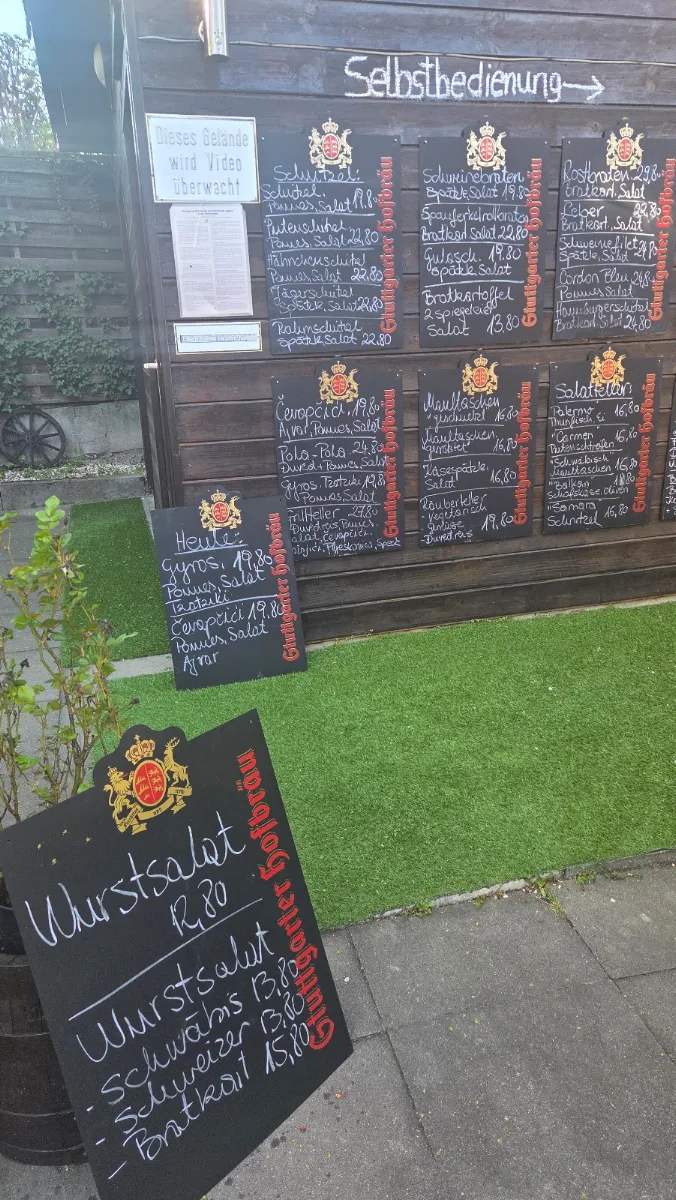 Selbstbedienung→
Dieses Gelände
wird Video
überwacht
Schnitzel:
Schnitzel
Pommes, Salat 19.80
Putenschnitzel
Pommes, Salat 22,80
Hähnchenschnitzel
Pommes Salat 22,80
Jägerschnitzel
Spätzle, Salat 24,80
Rahmschnitzel
Spätzle, Salat 22.80
Stuttgarter Hofbräu
Schweinebraten
Spätzle, Salat 19,80
Spanferkelrollbraten
Bratkart Salat 22,80
Gulasch. 19,80
Spätzle Salat
Bratkartoffel
2 spiegeleier
Salat 13,80
Stuttgarter Hofbräu
Rostbraten 29,80
Bratkart, Salat
Leber 22,80
Bratkart, Salat
Schweinefilet
Spätzle, Salat 24,80
Cordon Bleu 24,80
Pommes Salat
Hamburgerschnitzel
Bratkart Salat 24,80
Stuttgarter Hofbräu
Čevapčići 19,80
Ajvar, Pommes, Salat
Pola-Pola 24,80
Pommes, Salat
Gyros Tzatziki 19,80
Pommes Salat
27,80
Stuttgarter Hofbräu
Maultaschen
geschmelzt 16,80
Maultaschen
geröstet 16,80
Käsespätzle
Salat 16,80
Räuberteller
vegetarisch
gemüse
19,80
Stuttgarter Hofbräu
Salatteller:
Palermo 16,80
Thunfisch, Ei
"Carmen 16,80
Putenstreifen
"Schwäbisch
Maultaschen 16,80
"Balkan
Schafskäse, oliven
"Samara
Schnitzel 16,80
Stuttgarter Hofbräu
Heute:
Gyros. 19,80
Pommes, Salat
Tzatziki
Čevapčići 19,80
Pommes, Salat
Ajvar
Stuttgarter Hofbräu
Wurstsalat
12,80
Wurstsalat
- Schwäbis 13,80
- Schweizer 13,80
- Bratkart 15,80
Stuttgarter Hofbräu